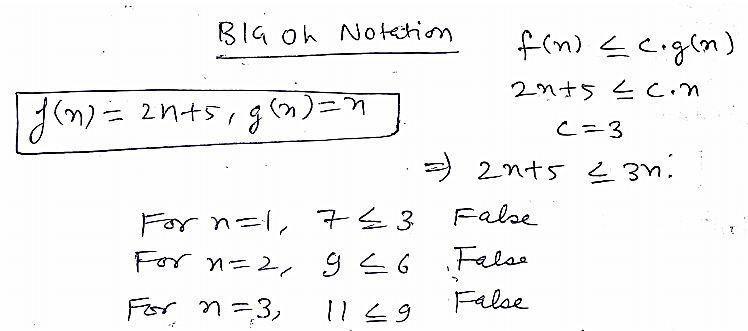 BIG Oh Notation
f(n) ≤ c.g(n)
f(n) = 2n+5, g(n)=n
2n+5 ≤ c.n
c=3
⇒ 2n+5 ≤ 3n
For n=1, 7 ≤ 3 False
For n=2, 9 ≤ 6 False
For n=3, 11 ≤ 9 False